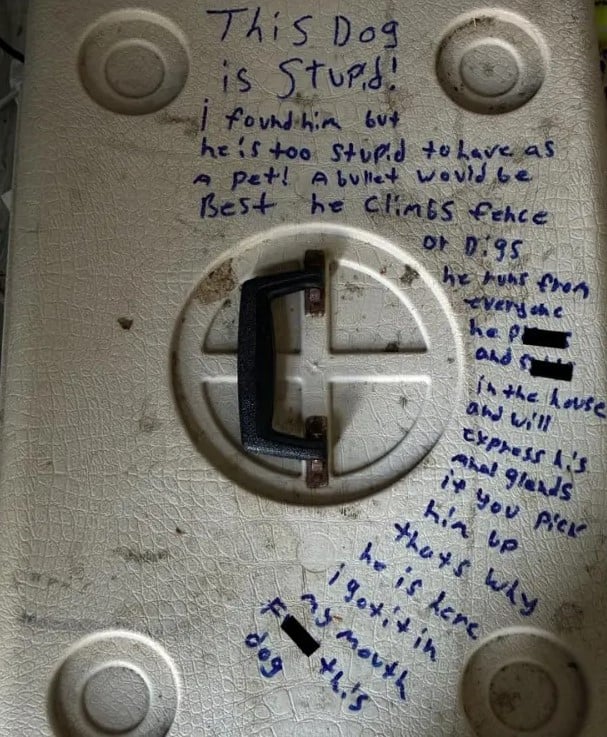 This Dog
is Stupid!
i found him but
he is too stupid to have as
a pet! A bullet would be
Best he climbs fence
or Digs
he runs from
everyone
he p
and s
in the house
and will
express his
anal glands
if you pick
him up
thats why
he is here
i got it in
my mouth
F this
dog